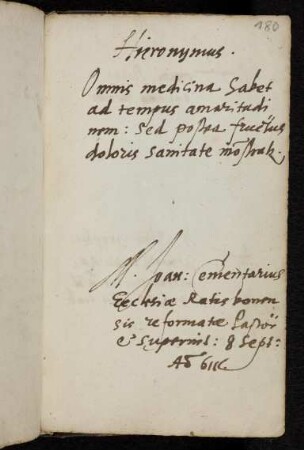 180
Hieronymus.
Omnis medicina habet
ad tempus amaritudi
nem: Sed postea fructus
doloris sanitate mõstrat.
M. Joan: Cementarius
Ecclesiæ Ratisbonen
sis reformatæ Pastor
& Superint: 8 Sept:
Aõ